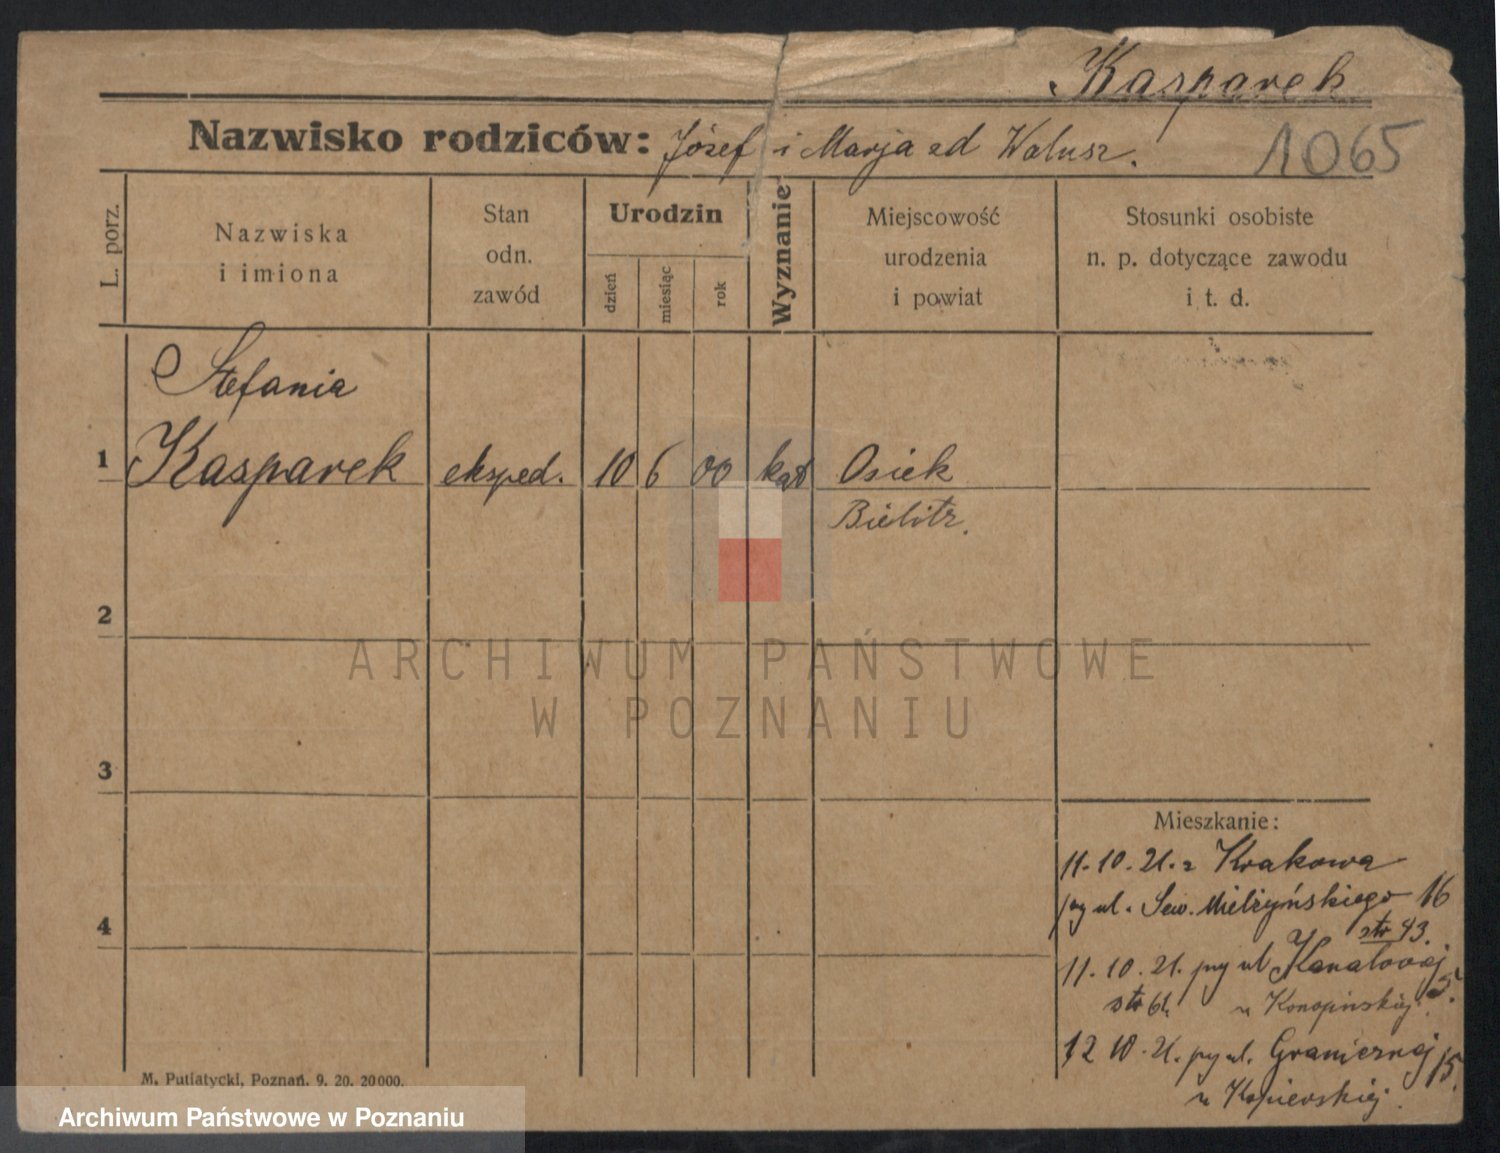 Kasparek
Nazwisko rodziców: Józef i Marja zd Walusz.
1065
L. porz.
Nazwiska
i imiona
Stan
odn.
zawód
Urodzin
dzień
miesiąc
rok
Wyznanie
Miejscowość
urodzenia
i powiat
Stosunki osobiste
n. p. dotyczące zawodu
i t. d.
Stefania
1 Kasparek eksped. 10 6 00 kat Osiek
Bielitz.
2
ARCHIWUM PAŃSTWOWE
W POZNANIU
3
Mieszkanie:
11.10.21. z Krakowa
4
ul. Sew. Mielżyńskiego 16
str 43.
11.10.21. przy ul Kanałowej 5.
str 61. u Konopińskiej.
12 10.21. przy ul. Granicznej 15.
u
M. Putiatycki, Poznań. 9. 20. 20000.
Archiwum Państwowe w Poznaniu